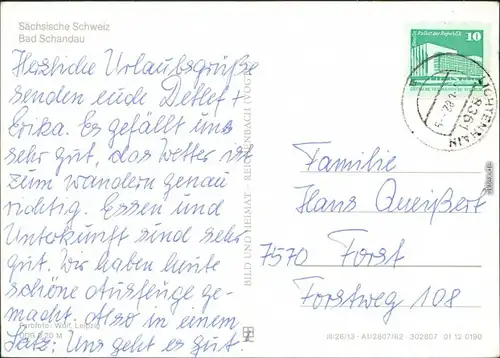 Sächsische Schweiz
Bad Schandau
Herzliche Urlaubsgrüße
senden eude Detlef +
Erika. Es gefällt uns
sehr gut, das Wetter ist
zum wandern genau
richtig. Essen und
Unterkunft sind sehr
gut. Wir haben heute
schöne Ausflüge ge-
macht. Also in einem
Satz: Uns geht es gut.
Farbfoto: Wolf, Leipzig
DDR 0,20 M
BILD UND HEIMAT - REICHENBACH (VOGTL)
10
LICHTENHAIN
8361
Familie
Hans Queißert
7570 Forst
Forstweg 108
III/26/13 - A1/2807/82 302807 01 12 0190